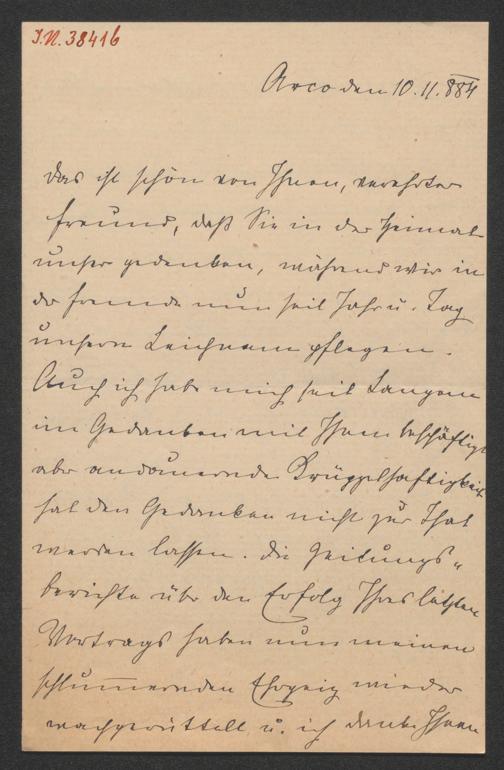 I.N. 38416
Arco den 10.11.884
Das ist schön von Ihnen, verehrter
Freund, daß Sie in der Heimat
unser gedenken, während wir in
der Fremde nun seit Jahr u. Tag
unsern Leichnam pflegen.
Auch ich habe mich seit Langem
im Gedanken mit Ihnen beschäftigt
aber andauernde Krüppelhaftigkeit
hat den Gedanken nicht zur That
werden lassen. Die Zeitungs-
berichte über den Erfolg Ihres letzten
Vortrags haben nun meinen
schlummernden Ehrgeiz wieder
wachgerüttelt u. ich danke Ihnen